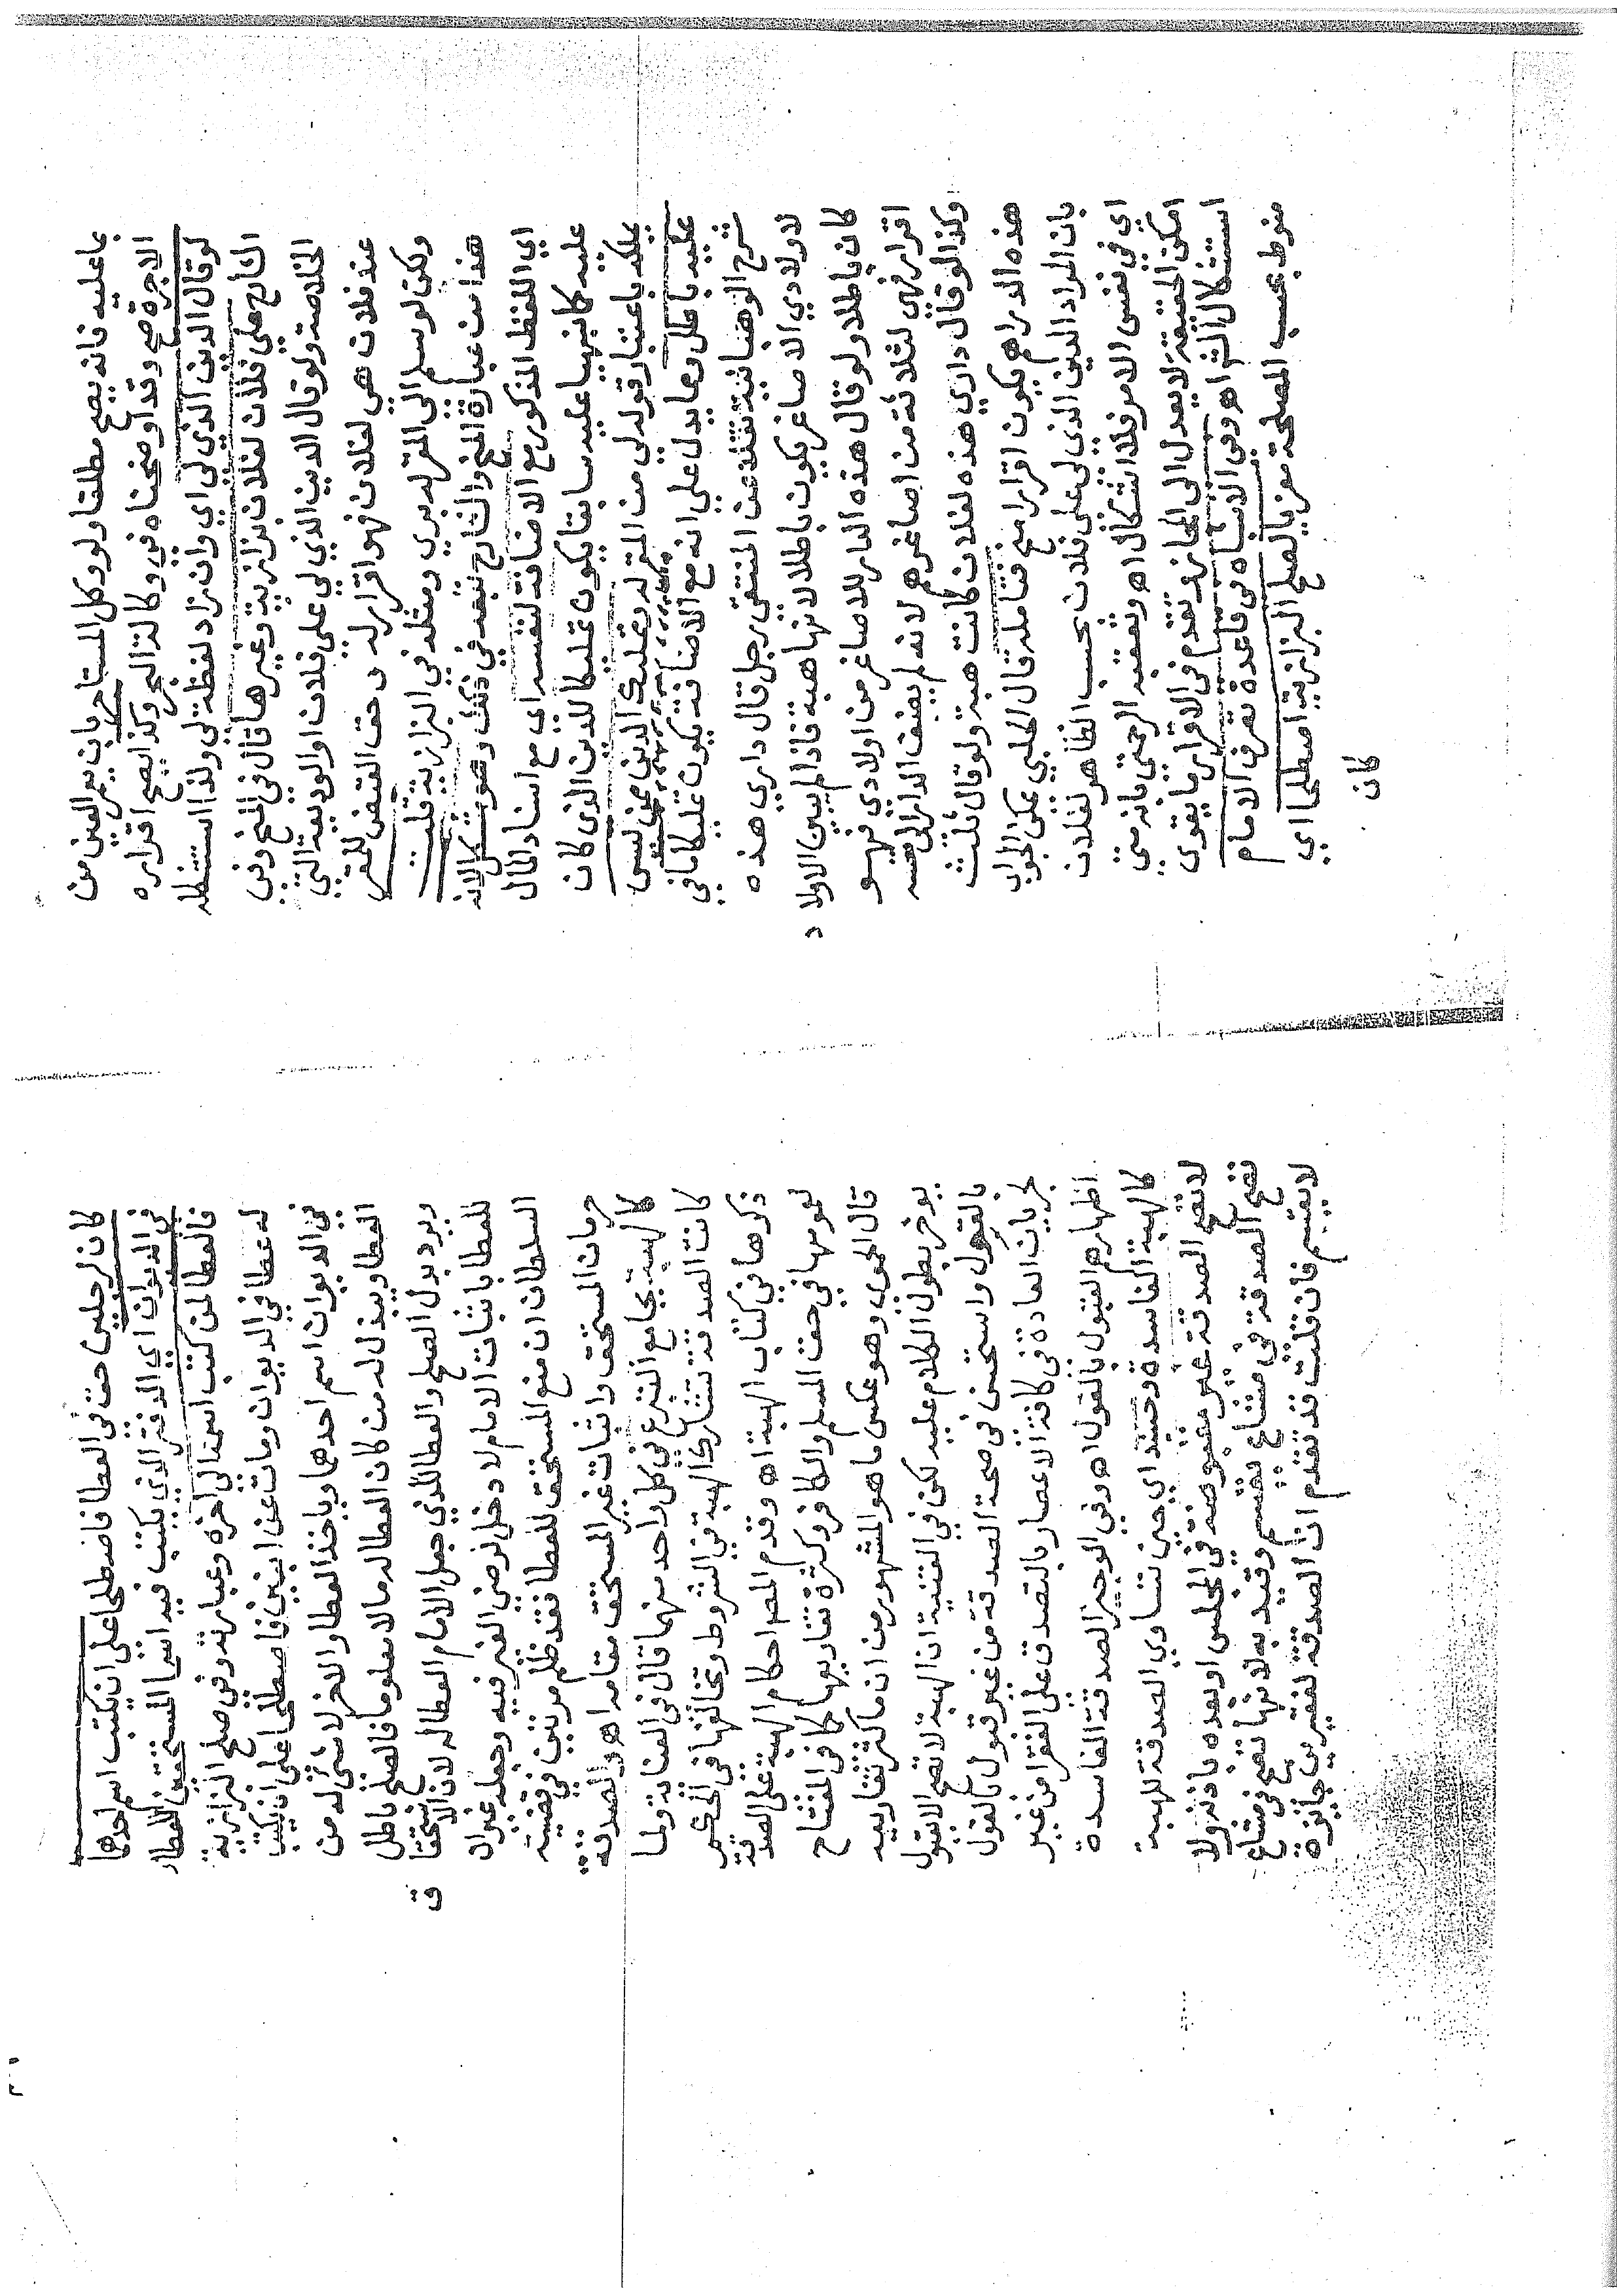 بما عليه فانه يصح مطلقا ولو وكل المستاجر بان يعمر العين من
الاجرة صح وقد اوضحناه في وكالة البحر وكذا يصح اقراره
لو قال الدين الذي لي اي وان زاد لفظة لي ولذا استشكله
الشارح على فلان لفلان بزازية وغيرها قال في المنح وفي
الخلاصة ولو قال الدين الذي لي على فلان او الوديعة التي
عند فلان هي لفلان فهو اقرار له وحق القبض للمقر
ولكن لو سلم الى المقر له بري ومثله في البزازية قلت
هذا من عبارة المنح والشارح تبعه في ذلك وهو مشكل لانه
اي اللفظ المذكور مع الاضافة لنفسه اي مع اسناد المال
عليه كانيها عليه سابقا يكون تمليكا للدين الذي كان
يملكه باعتبار قوله لي من المقر له وتمليك الدين ممن ليس
عليه باطل ومما يدل على انه مع الاضافة يكون تمليكا ما في
شرح الوهبانية نقلا عن المنتقى رجل قال داري هذه
لاولادي الاصاغر يكون باطلا لانها هبة فاذا لم يبين الاولاد
كان باطلا ولو قال هذه الدار للاصاغر من اولادي فهو
اقرار فهي لثلاثة من اصاغرهم لانه لم يضف الدار الى نفسه
وكذا لو قال داري هذه لفلان كانت هبة ولو قال ثلث
هذه الدراهم يكون اقرارا منح فتامله قال الحلبي يمكن الجواب
بان المراد الدين الذي لي على فلان بحسب الظاهر لفلان
اي في نفس الامر فلا اشكال اهـ وتعقبه الرحمتي بانه متى
امكن الحقيقة لا يعدل الى المجاز وتقدم في الاقرار ما يقوى
استشكال الشراح وفي الاشباه في قاعدة تصرف الامام
منوط بحسب المصلحة معزيا لصلح البزازية اصطلحا اي
كان
كان لرجلين حق في العطا فاصطلحا على ان يكتب اسم احدهما
في الديوان اي الدفتر الذي يكتب فيه اسما المستحقين للعطا
فالعطا لمن كتب اسمه الى اخره وعبارته وفي صلح البزازية
له عطا في الديوان ومات عن ابنين فاصطلحا على ان يكتب
في الديوان اسم احدهما وياخذ العطا والاخر لا شي له من
العطا ويبذل له من كان العطا له مالا معلوما فالصلح باطل
ويرد بدل الصلح والعطا للذي جعل الامام العطا له لان الاستحقاق
للعطا باثبات الامام لا دخل لرضى الغير فيه وجعله غير ان
السلطان ان منع المستحق للعطا فقد ظلم مرتين في قضية
حرمان المستحق واثبات غير المستحق مقامه اهـ والصدقة
كالهبة بجامع التبرع في كل واحد منهما قال في العناية ولما
كانت الصدقة تشارك الهبة في الشروط وتخالفها في الحكم
ذكرها في كتاب الهبة اهـ وقدم المص احكام الهبة على الصدقة
لعمومها في حق المسلم والكافر وكثرة تفاريعها كما في المفتاح
قال الحموي وهو عكس ما هو المشهور من ان ما كثر تفاريعه
يوخر بطول الكلام عليه لكن في القنية ان الهبة لا تصح الا بقبول
بالقول واستحسن في صحة الصدقة من غير قبول بالقول
لجريان العادة في كافة الاعصار بالتصدق على الفقرا من غير
اظهارهم القبول بالقول اهـ وفي الوجيز الصدقة الفاسدة
كالهبة الفاسدة وحينئذ اي حين تساوي الصدقة للهبة
لا تصح الصدقة غير مقبوضة في المجلس او بعده باذنه ولا
تصح الصدقة في مشاع يقسم وقيد به لانها تصح في مشاع
لا يقسم فان قلت قد تقدم ان الصدقة لفقيرين جائزة